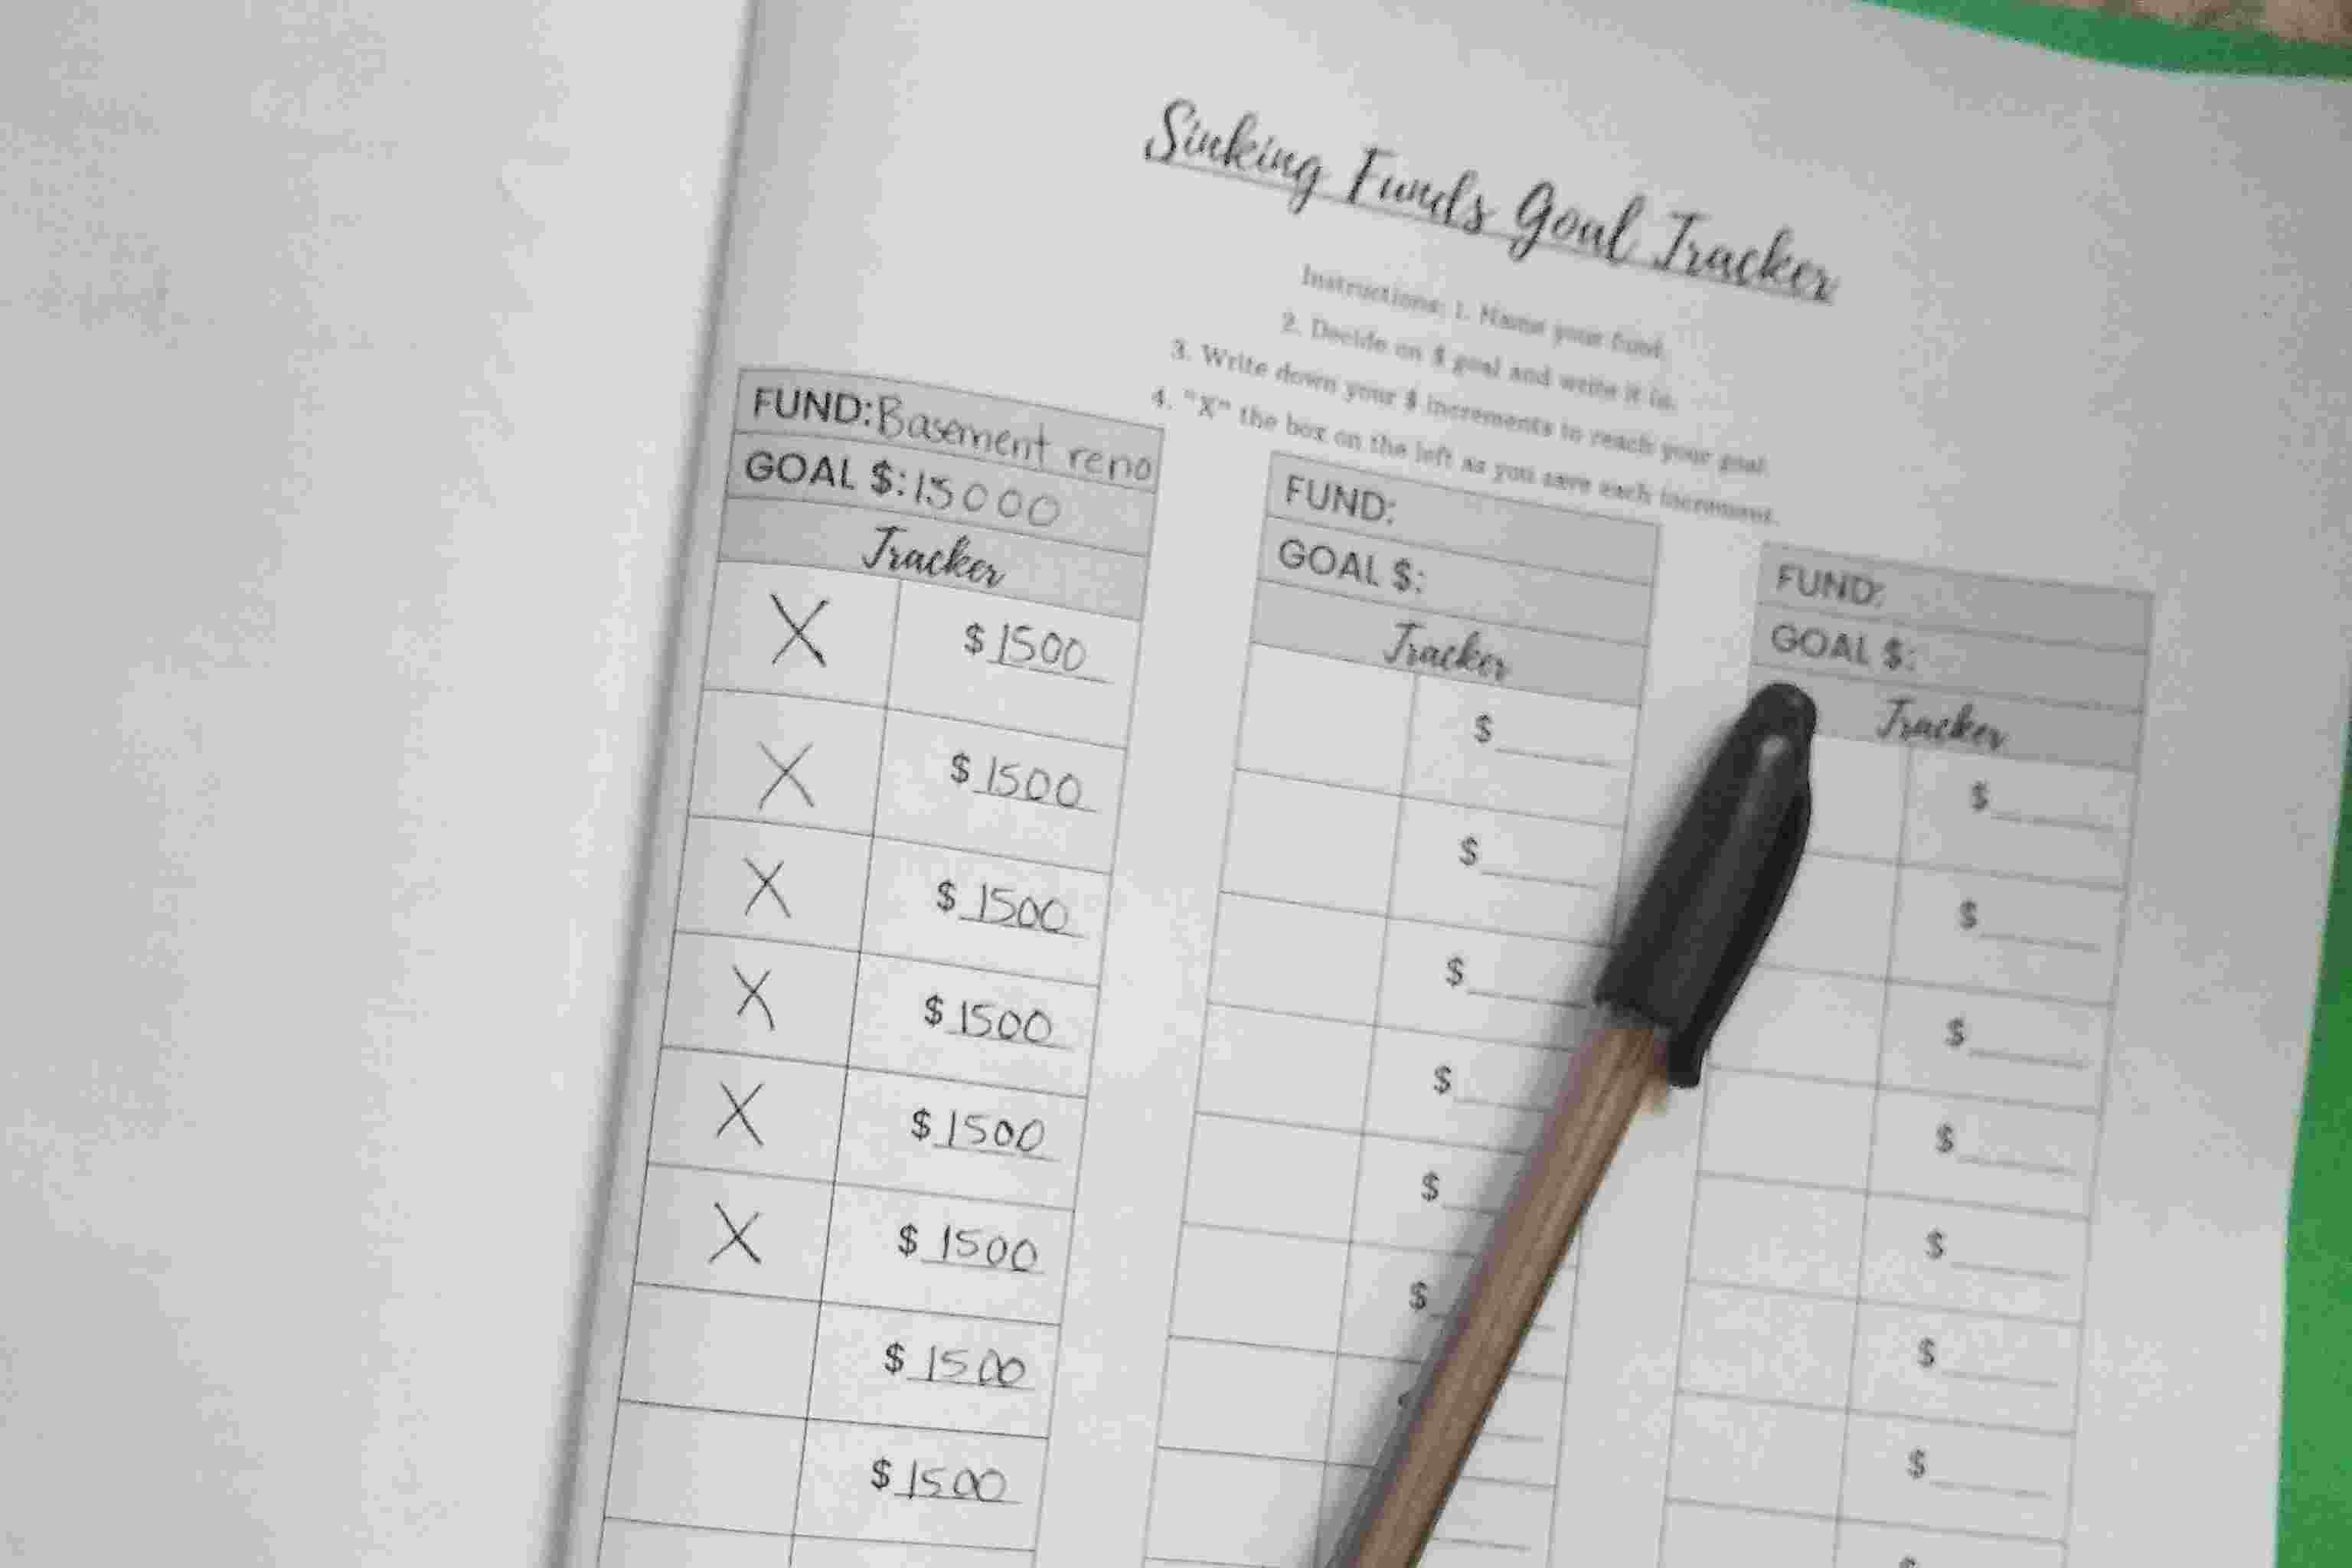 Sinking Funds Goal Tracker
Instructions: 1. Name your fund.
2. Decide on $ goal and write it in.
3. Write down your $ increments to reach your goal.
4. "X" the box on the left as you save each increment.
FUND: Basement reno
GOAL $: 15000
Tracker
X $ 1500
X $ 1500
X $ 1500
X $ 1500
X $ 1500
X $ 1500
$ 1500
$ 1500
FUND:
GOAL $:
Tracker
$
$
$
$
$
$
FUND:
GOAL $:
Tracker
$
$
$
$
$
$
$